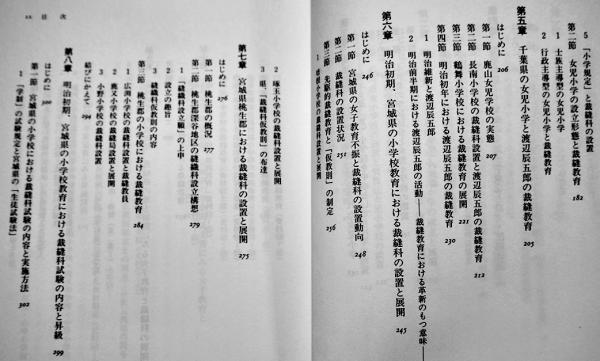 5 「小学規定」と裁縫科の設置
第二節 女児小学の設立形態と裁縫教育 182
1 士族主導型の女児小学
2 行政主導型の女児小学と裁縫教育
第五章 千葉県の女児小学と渡辺辰五郎の裁縫教育 205
はじめに 206
第一節 鹿山女児学校の実態 207
第二節 長南小学校の裁縫科設置と渡辺辰五郎の裁縫教育 212
第三節 鶴舞小学校における裁縫教育の展開 221
第四節 明治初年における渡辺辰五郎の裁縫教育 230
1 明治維新と渡辺辰五郎
2 明治前半期における渡辺辰五郎の活動――裁縫教育における革新のもつ意味――
第六章 明治初期、宮城県の小学校教育における裁縫科の設置と展開 245
はじめに 246
第一節 宮城県の女子教育不振と裁縫科の設置動向 248
第二節 裁縫科の設置状況 251
第三節 先駆的裁縫教育と「仮教則」の制定 256
小学校の裁縫科設置と展開
2 啄玉小学校の裁縫科設置と展開
3 県、「裁縫科仮教則」の布達
第七章 宮城県桃生郡における裁縫科の設置と展開 275
はじめに 276
第一節 桃生郡の概況 277
第二節 桃生郡深谷地区の縫裁科設立構想 279
1 「縫裁科設立願」の上申
2 設立の趣旨
3 縫裁科の教育の内容
第三節 桃生郡の小学校における裁縫教育 284
1 広淵小学校の裁縫科設置と裁縫教員
2 鹿又小学校の裁縫局設置と展開
3 小野小学校の裁縫科設置
結びにかえて 294
第八章 明治初期、宮城県の小学校教育における裁縫科試験の内容と昇級 299
はじめに 300
第一節 宮城県の小学校における裁縫科試験の内容と実施方法 302
1 「学制」の試験規定と宮城県の「生徒試験法」
xx 目次